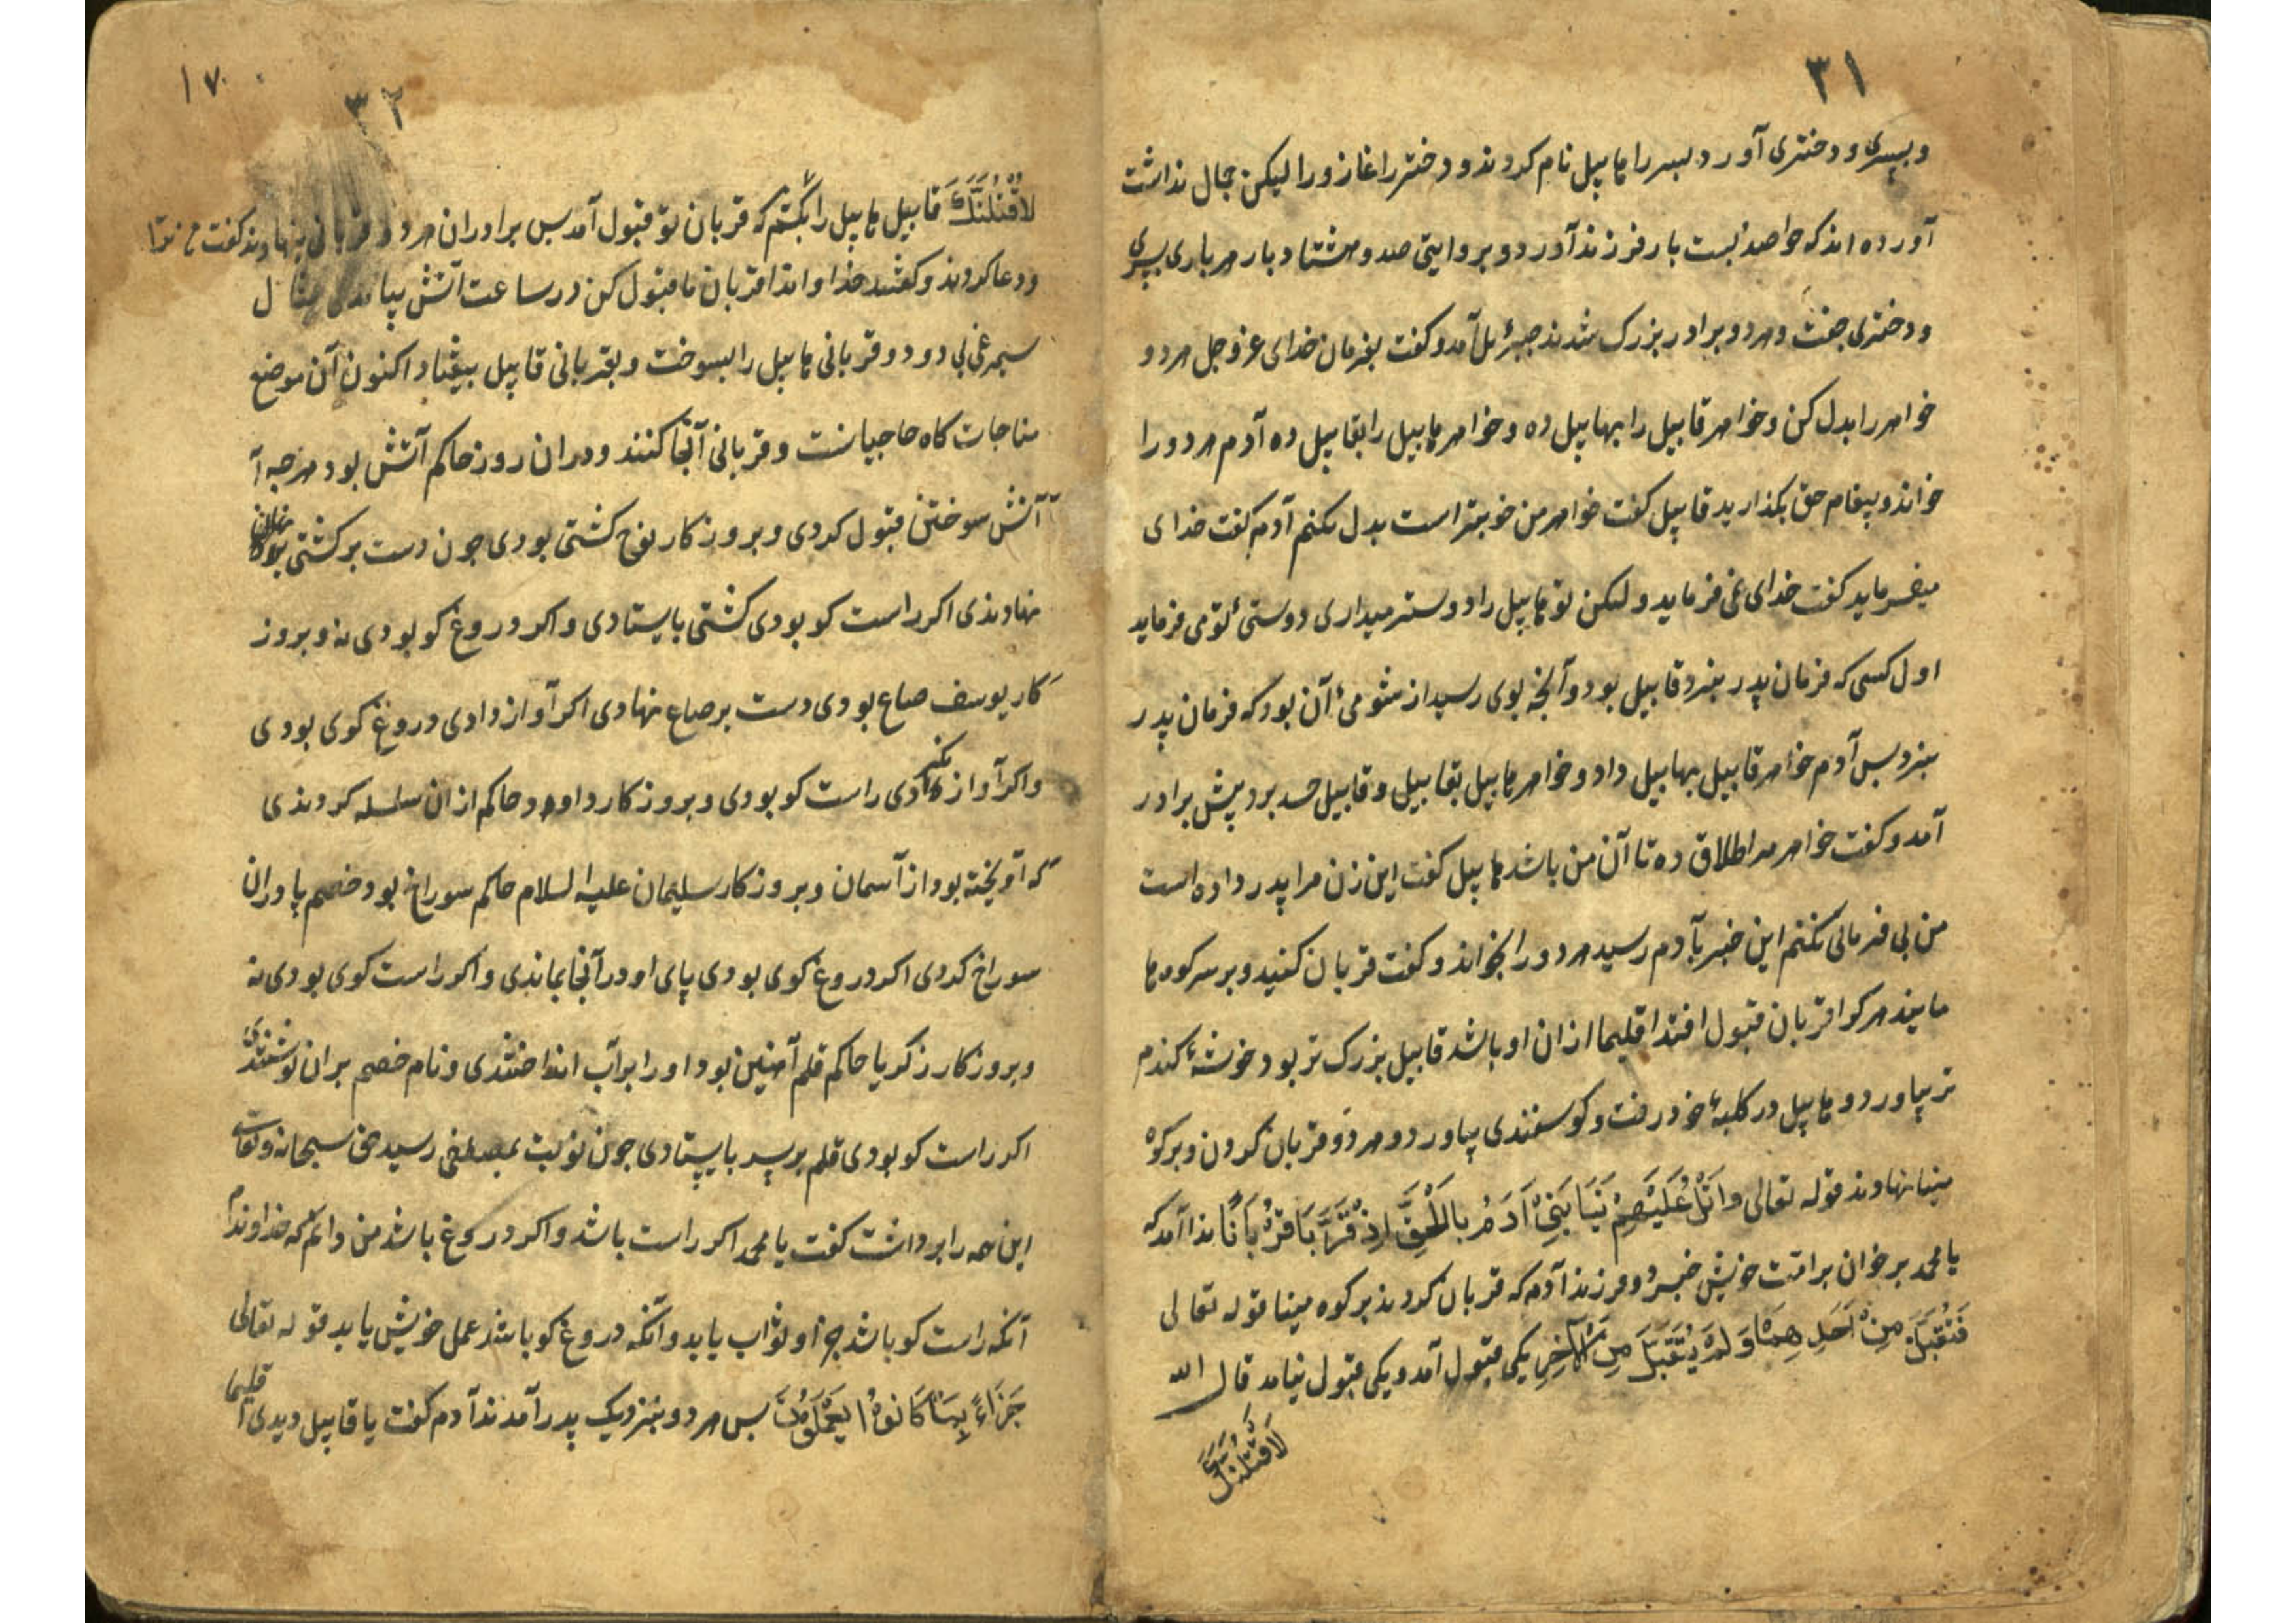 ۳۱
و پسری و دختری آورد پسر را هابیل نام کردند و دختر را غازورا لیکن جمال نداشت
آورده اند که حوا صد بیست بار فرزند آورد و بروایتی صد و هشتاد بار هر باری پسری
و دختری جفت و هر دو برادر بزرک شدند جبرئیل آمد و کفت بفرمان خدای عزوجل هر دو
خواهر را بدل کن و خواهر قابیل را بهابیل ده و خواهر هابیل را بقابیل ده آدم هر دو را
خواند و پیغام حق بکذارید قابیل کفت خواهر من خوبتر است بدل نکنم آدم کفت خدای
میفرماید کفت خدای نمی فرماید و لیکن تو هابیل را دوستر میداری دوستئ تو می فرماید
اول کسی که فرمان پدر نبرد قابیل بود و آنچه بوی رسید از شومئ آن بود که فرمان پدر
نبرد پس آدم خواهر قابیل بهابیل داد و خواهر هابیل بقابیل و قابیل حسد برد پیش برادر
آمد و کفت خواهر مرا طلاق ده تا آن من باشد هابیل کفت این زن مرا پدر داده است
من بی فرمانی نکنم این خبر بآدم رسید هر دو را بخواند و کفت قربان کنید و بر سر کوه ها
مانید هر کرا قربان قبول افتد اقلیما ازان او باشد قابیل بزرک تر بود خوشهٔ کندم
تر بیاورد و هابیل در کلبهٔ خود رفت و کوسفندی بیاورد و هر دو قربان کردن و بر کوه
مینا نهادند قوله تعالی وَاتْلُ عَلَيْهِمْ نَبَأَ بَنِيْ آدَمَ بِالْحَقِّ اِذْ قَرَّبَا قُرْبَانًا ندا آمد که
یا محمد بر خوان بر امت خویش خبر دو فرزند آدم که قربان کردند بر کوه مینا قوله تعالی
فَتُقُبِّلَ مِنْ اَحَدِهِمَا وَلَمْ يُتَقَبَّلْ مِنَ الْآخَرِ یکی قبول آمد و یکی قبول نیامد قال الله
لَاَقْتُلَنَّكَ
۱۷
۳۲
لَاَقْتُلَنَّكَ قابیل هابیل را بکشتم که قربان تو قبول آمد پس برادران هر دو قربانی بنهادند کفت من ترا
و دعا کردند و کفتند خداوندا قربان ما قبول کن در ساعت آتش بیامدی مثال
سیمرغی بی دود و قربانی هابیل را بسوخت و بقربانی قابیل بیفتاد اکنون آن موضع
مناجات کاه حاجیانست و قربانی آنجا کنند و دران روز حاکم آتش بود هر چه آ
آتش سوختن قبول کردی و بروزکار نوح کشتی بودی چون دست بر کشتی
نهادندی اکر راست کو بودی کشتی بایستادی و اکر دروغ کو بودی نه و بروز
کار یوسف صاع بودی دست بر صاع نهادی اکر آواز دادی دروغ کوی بودی
و اکر آواز نکردی راست کو بودی و بروزکار داود حاکم ازان سلسله کردندی
که آویخته بود از آسمان و بروزکار سلیمان علیه السلام حاکم سوراخ بود خصم پا دران
سوراخ کردی اکر دروغ کوی بودی پای او در آنجا بماندی و اکر راست کوی بودی نه
و بروزکار زکریا حاکم قلم آهنین بود او را بر آب انداختندی و نام خصم بران نوشتندی
اکر راست کو بودی قلم بر سر بایستادی چون نوبت بمصطفی رسید حق سبحانه و تعالی
این همه را برداشت کفت یا محمد اکر راست باشد و اکر دروغ باشد من دانم که خداوندم
آنکه راست کو باشد جزا و ثواب یابد و آنکه دروغ کو باشد عمل خویش یابد قوله تعالی
جَزَاءً بِمَا كَانُوْا يَعْمَلُوْنَ پس هر دو بنزدیک پدر آمدند آدم کفت یا قابیل دیدی اقلیما